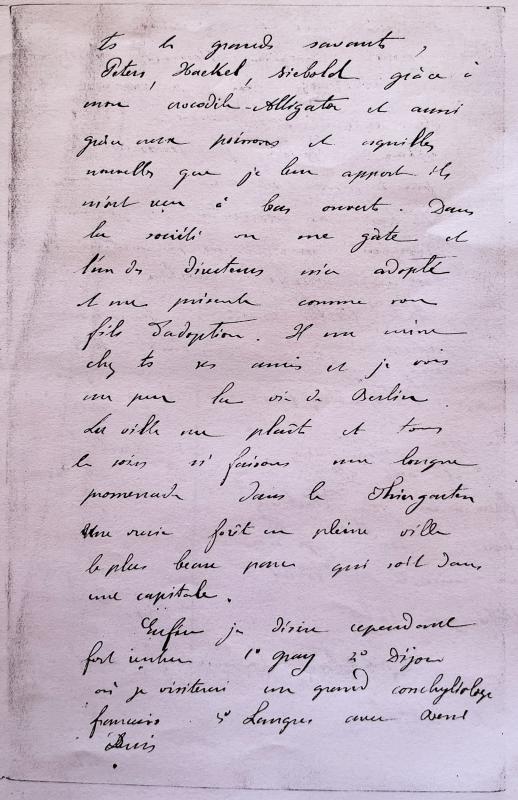 ts les grands savants,
Peters, Haekel, Siebold grâce à
mon crocodile-Alligator et aussi
grâce aux poissons et coquilles
nouvelles que je leur apporte ils
m'ont reçu à bras ouverts. Dans
la société on me gâte et
l'un des directeurs m'a adopté
et me présente comme son
fils d'adoption. Il me mène
chez ts ses amis et je vois
un peu la vie de Berlin
La ville me plaît et tous
les soirs ns faisons une longue
promenade dans le Thiergarten
Une vraie forêt en pleine ville
le plus beau parc qui soit dans
une capitale.
Enfin je désire cependant
fort rentrer 1º Gray 2º Dijon
où je visiterai un grand conchyliologue
français 3º Langres avec